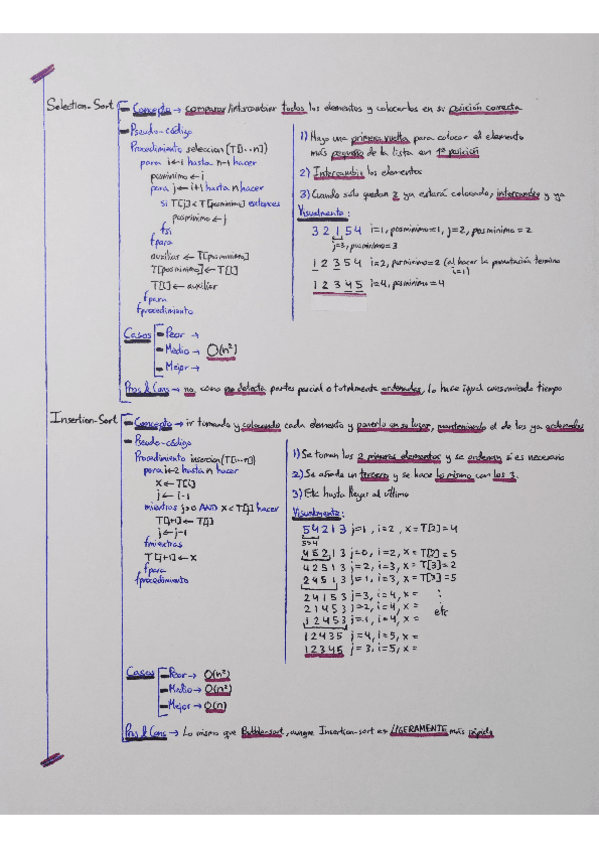 Selection-Sort
Concepto → comparar/intercambiar todos los elementos y colocarlos en su posición correcta
Pseudo-código
Procedimiento seleccion(T[1··n])
para i←1 hasta n-1 hacer
posminimo ← i
para j ← i+1 hasta n hacer
si T[j] < T[posminimo] entonces
posminimo ← j
fsi
fpara
auxiliar ← T[posminimo]
T[posminimo] ← T[i]
T[i] ← auxiliar
fpara
fprocedimiento
1) Hago una primera vuelta para colocar el elemento
más pequeño de la lista en 1ª posición
2) Intercambio los elementos
3) Cuando sólo quedan 2 ya estará colocado, intercambio y ya
Visualmente:
3 2 1 5 4 i=1, posminimo=1, j=2, posminimo = 2
j=3, posminimo=3
1 2 3 5 4 i=2, posminimo=2 (al hacer la permutación termina
i=1)
1 2 3 4 5 i=4, posminimo=4
Casos
Peor →
Medio → O(n²)
Mejor →
Pros & Cons → no, como no detecta partes parcial o totalmente ordenadas, lo hace igual consumiendo tiempo
Insertion-Sort
Concepto → ir tomando y colocando cada elemento y ponerlo en su lugar, manteniendo el de los ya ordenados
Pseudo-código
Procedimiento insercion(T[1··n])
para i←2 hasta n hacer
x ← T[i]
j ← i-1
mientras j>0 AND x<T[j] hacer
T[j+1] ← T[j]
j ← j-1
fmientras
T[j+1] ← x
fpara
fprocedimiento
1) Se toman los 2 primeros elementos y se ordenan si es necesario
2) Se añade un tercero y se hace lo mismo con los 3.
3) Etc hasta llegar al último
Visualmente:
5 4 2 1 3 j=1, i=2, x=T[2]=4
5>4
4 5 2 1 3 j=0, i=2, x=T[2]=5
4 2 5 1 3 j=2, i=3, x=T[3]=2
2 4 5 1 3 j=1, i=3, x=T[3]=5
2 4 1 5 3 j=3, i=4, x= ⋮
2 1 4 5 3 j=2, i=4, x=
etc
1 2 4 5 3 j=1, i=4, x=
1 2 4 3 5 j=4, i=5, x=
1 2 3 4 5 j=3, i=5, x=
Casos
Peor → O(n²)
Medio → O(n²)
Mejor → O(n)
Pros & Cons → Lo mismo que Bubble-sort, aunque Insertion-sort es LIGERAMENTE más rápido